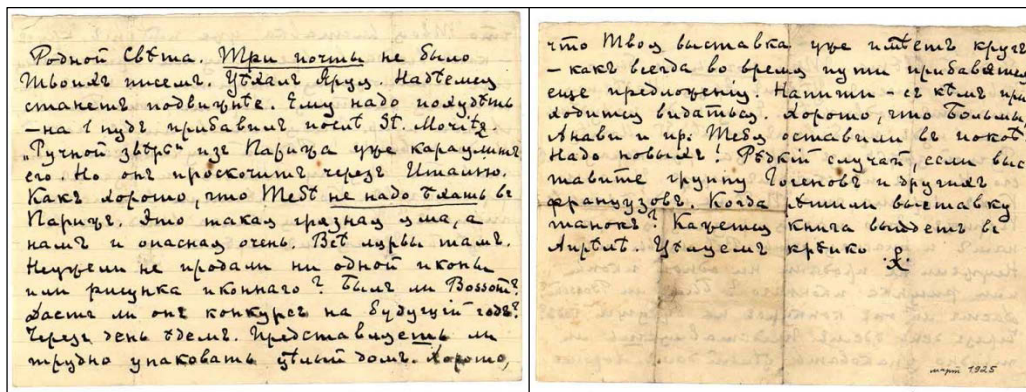 Родной Свѣта. Три почты не было
Твоихъ писемъ. Уѣхалъ Яруя. Надѣемся
станетъ подвижнѣе. Ему надо похудѣть
– на 1 пудъ прибавилъ послѣ St. Moritz.
„Ручной звѣрь" изъ Парижа уже караулитъ
его. Но онъ проскочитъ черезъ Италію.
Какъ хорошо, что Тебѣ не надо ѣхать въ
Парижъ. Это такая грязная яма, а
намъ и опасная очень. Всѣ лярвы тамъ.
Неужели не продали ни одной иконы
или рисунка иконнаго? Былъ ли Bossom?
Дастъ ли онъ конкурсъ на будущій годъ?
Черезъ день ѣдемъ. Представляешь ли
трудно упаковать цѣлый домъ. Хорошо,
что Твоя выставка уже имѣетъ кругъ
– какъ всегда во время пути прибавятся
еще предложенія. Напиши – съ кѣмъ при
ходится видаться. Хорошо, что Больмы,
Анави и пр. Тебя оставили въ покоѣ.
Надо новыхъ! Рѣдкій случай, если выс
тавите группу Гогеновъ и другихъ
французовъ. Когда выставку
танокъ? Кажется книга выйдетъ въ
Апрѣлѣ. Цѣлуемъ крѣпко
мартъ 1925